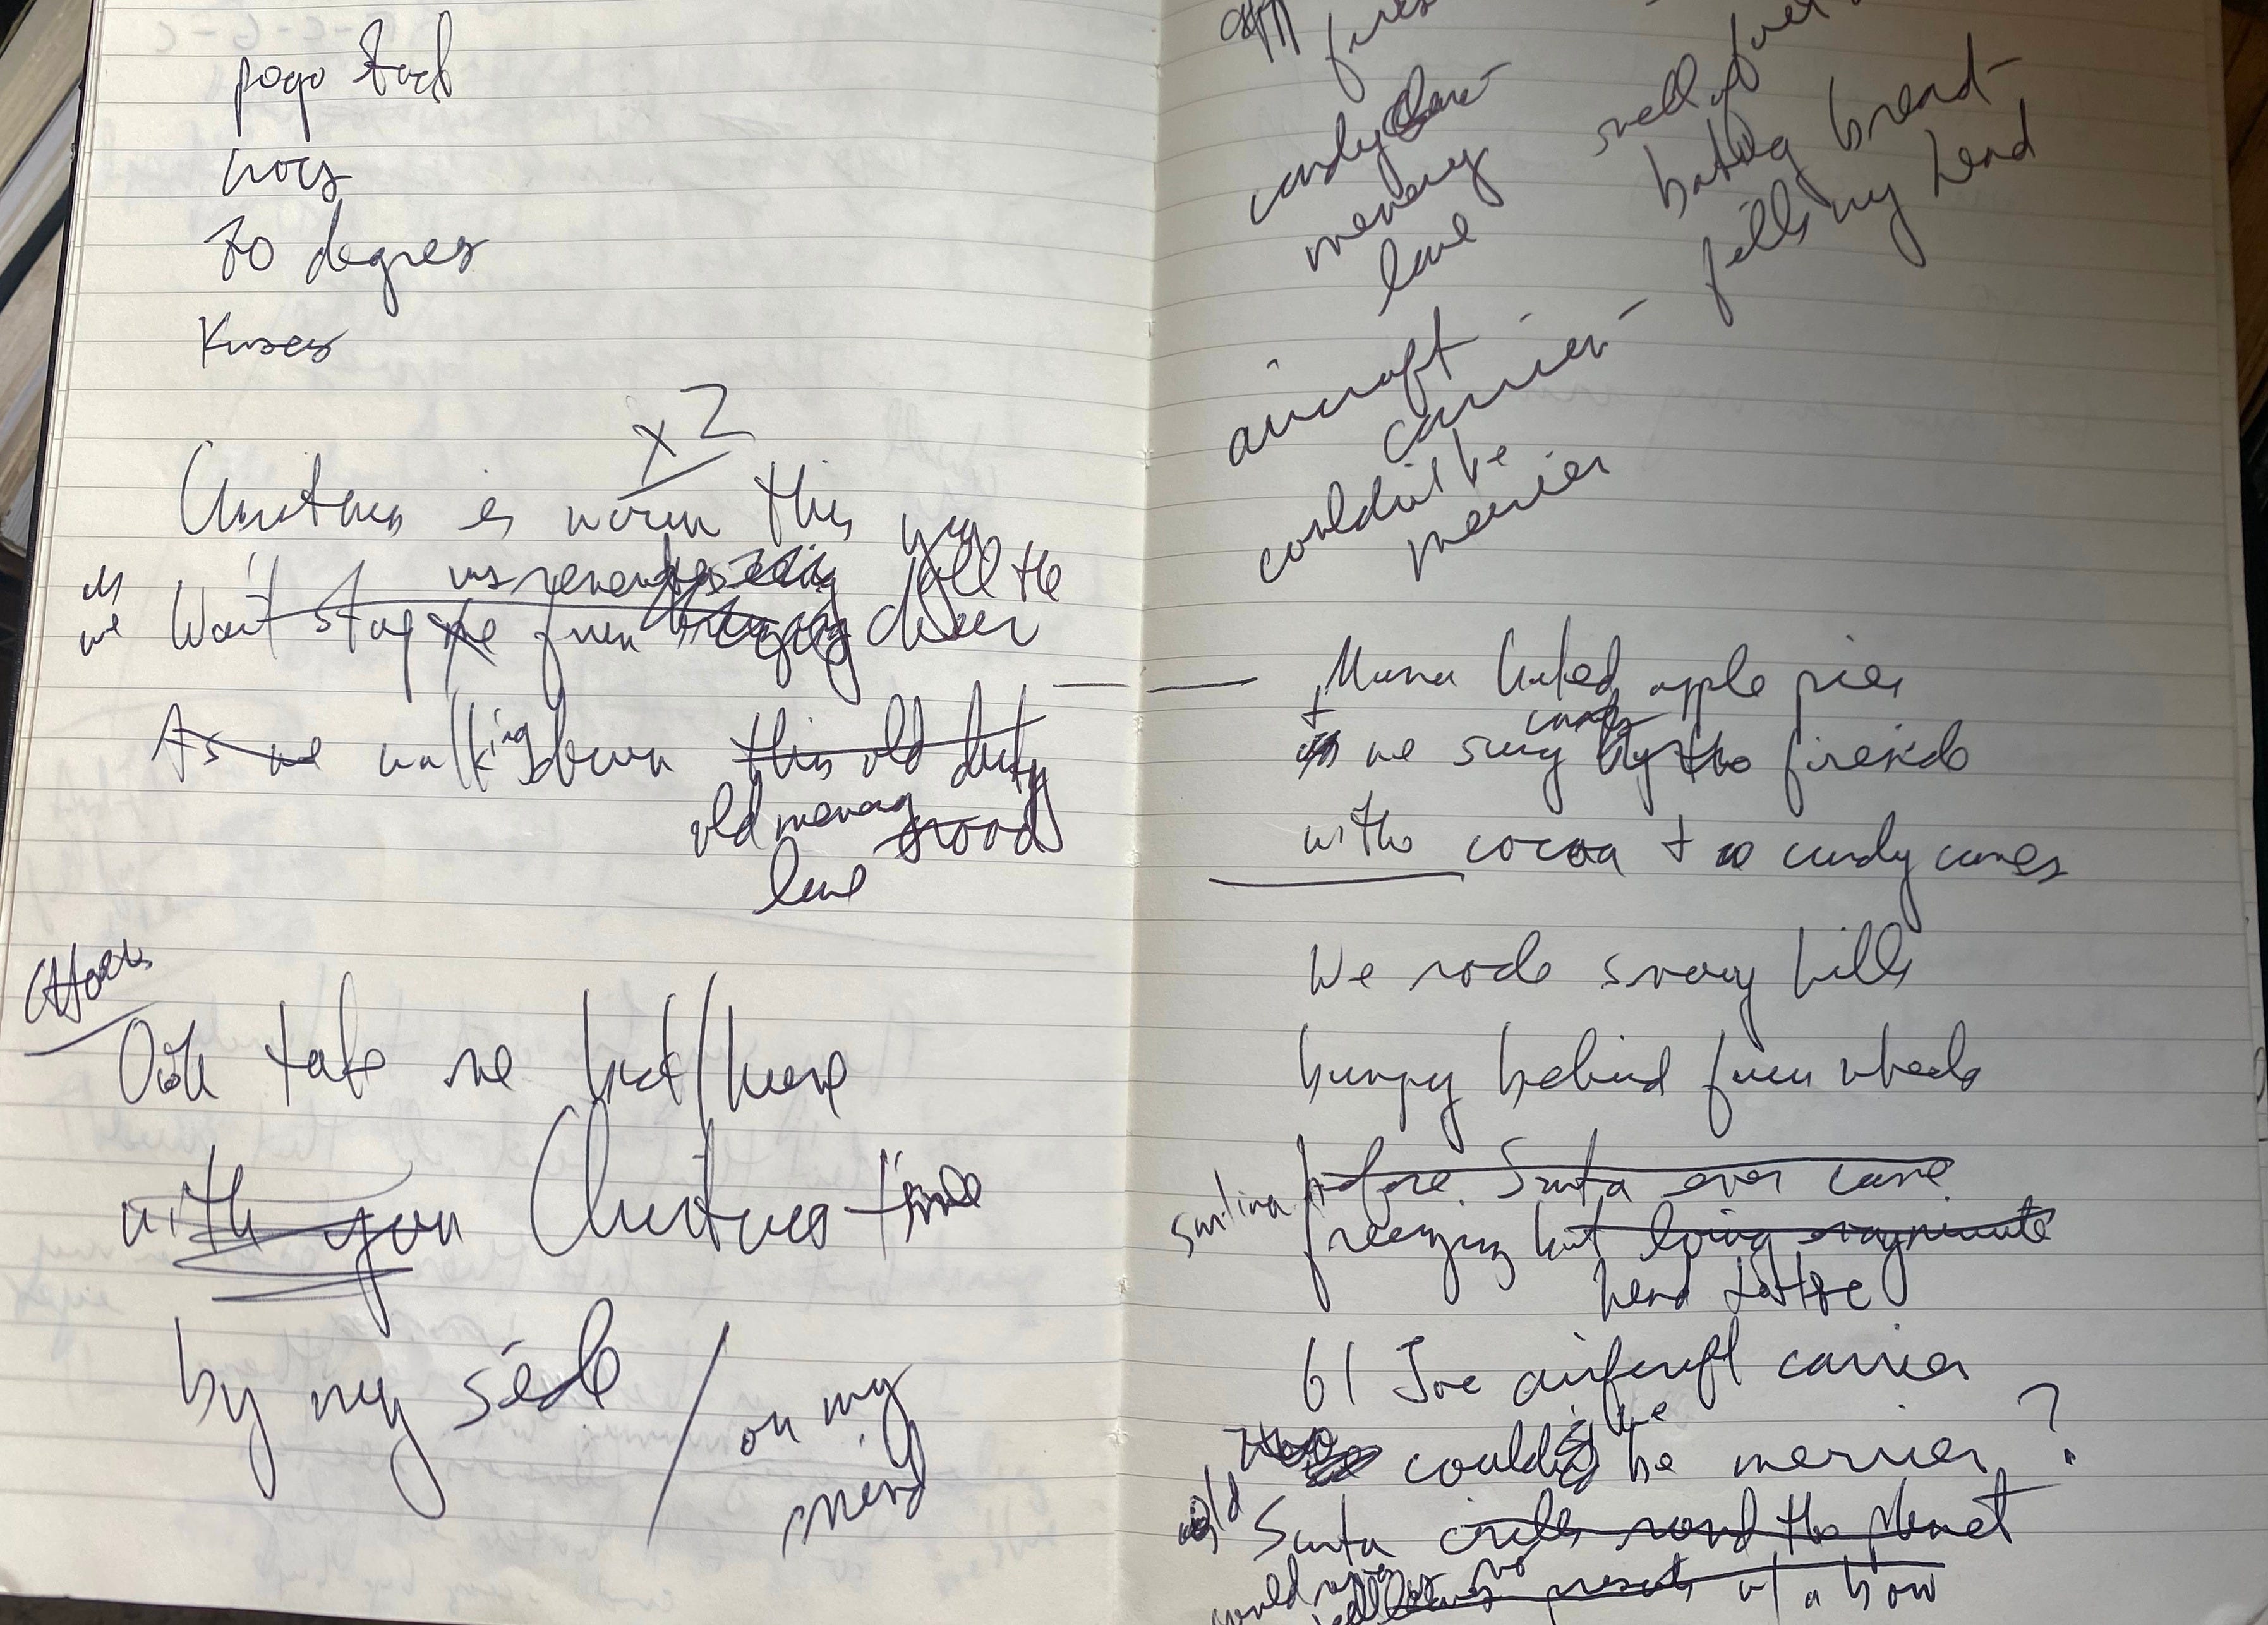 pogo stick
crocs
70 degrees
Kisses
x2
Christmas is warm this year
us remembering all the
we Won't stop me from cheer
As we walking down this old dirty
old memory road
lane
Chorus
Ooh take me back/home
with you Christmas time
by my side / on my
mind
fires
candy cane -
memory
lane
smell of
baking bread -
fills my head
aircraft
carrier -
couldn't be
merrier
Mama baked apple pies
+ we sung by the fireside
with cocoa + candy canes
We rode snowy hills
bumpy behind four wheels
before Santa ever came
freezing but loving every minute
head to toe
GI Joe aircraft carrier
could be merrier ?
old Santa circles round the planet
would presents w/ a bow